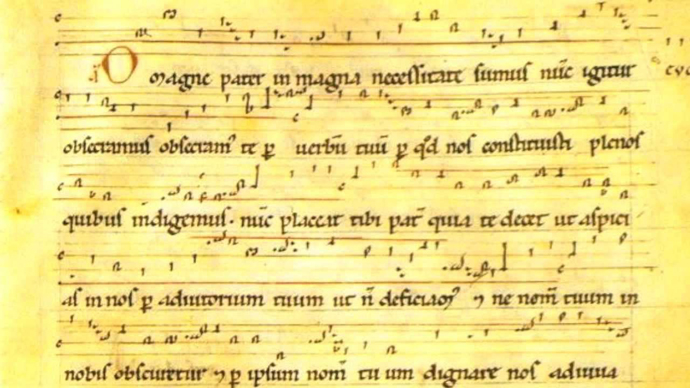 O magne pater in magna necessitate sumus nūc igitur
obsecramus obsecram' te ꝑ uerbū tuū ꝑ qd nos constituisti plenos
quibus indigemus. nūc placeat tibi pat̄ quia te decet ut aspici
as in nos ꝑ adiutorium tuum ut n̄ deficiam' ⁊ ne nom̄ tuum in
nobis obscuretur ⁊ ꝑ ipsum nom̄ tu um dignare nos adiuua